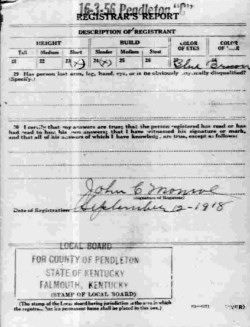 16-3-56 Pendleton
REGISTRAR'S REPORT
DESCRIPTION OF REGISTRANT
HEIGHT BUILD COLOR OF EYES COLOR OF
Tall Medium Short Slender Medium Stout
21 22 23 24 25 26 27 28
Blue Brown
29 Has person lost arm, leg, hand, eye, or is he obviously physically disqualified?
(Specify.)
30 I certify that my answers are true; that the person registered has read or has
had read to him his own answers; that I have witnessed his signature or mark,
and that all of his answers of which I have knowledge are true, except as follows:
John C Monroe
(Signature of Registrar)
Date of Registration September 12-1918
LOCAL BOARD
FOR COUNTY OF PENDLETON
STATE OF KENTUCKY
FALMOUTH, KENTUCKY
(STAMP OF LOCAL BOARD)
(The stamp of the Local Board having jurisdiction of the area in which
the registrant has his permanent home shall be placed in this box.)
(OVER)